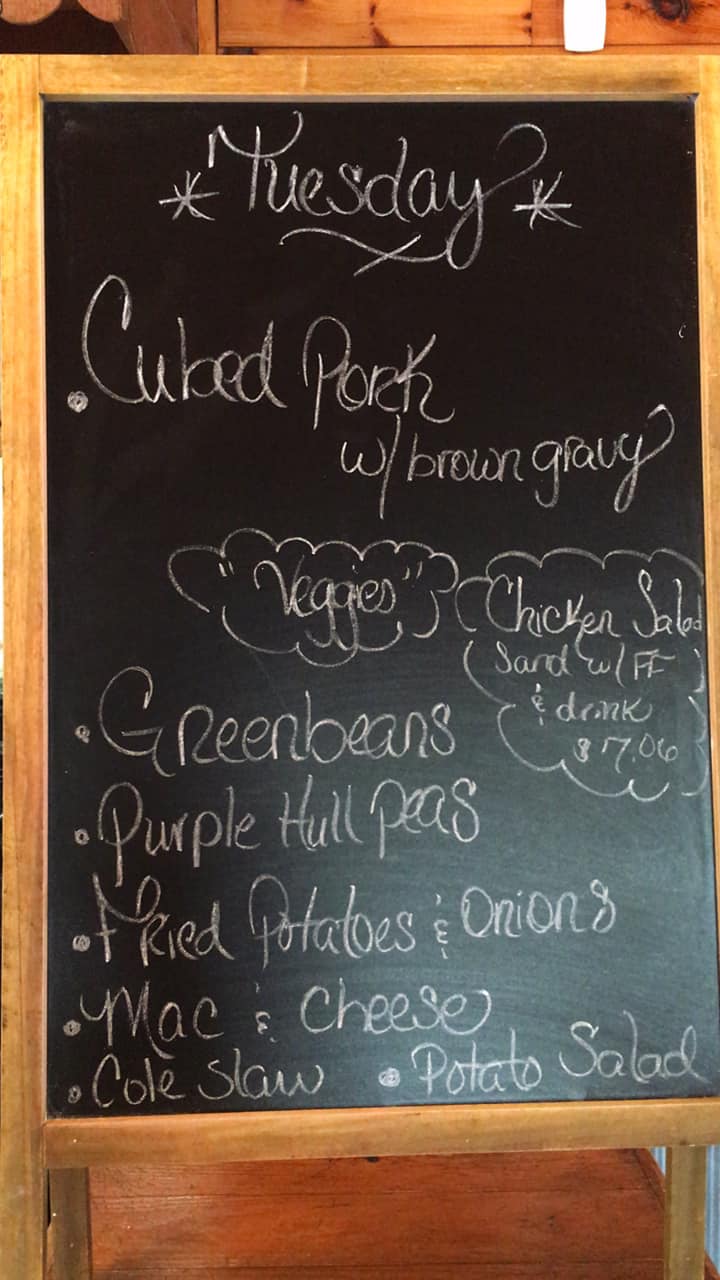 * Tuesday *
• Cubed Pork
w/ brown gravy
"Veggies"
Chicken Salad
Sand w/ FF
& drink
$7.06
• Greenbeans
• Purple Hull Peas
• Fried Potatoes & Onions
• Mac & Cheese
• Cole Slaw • Potato Salad